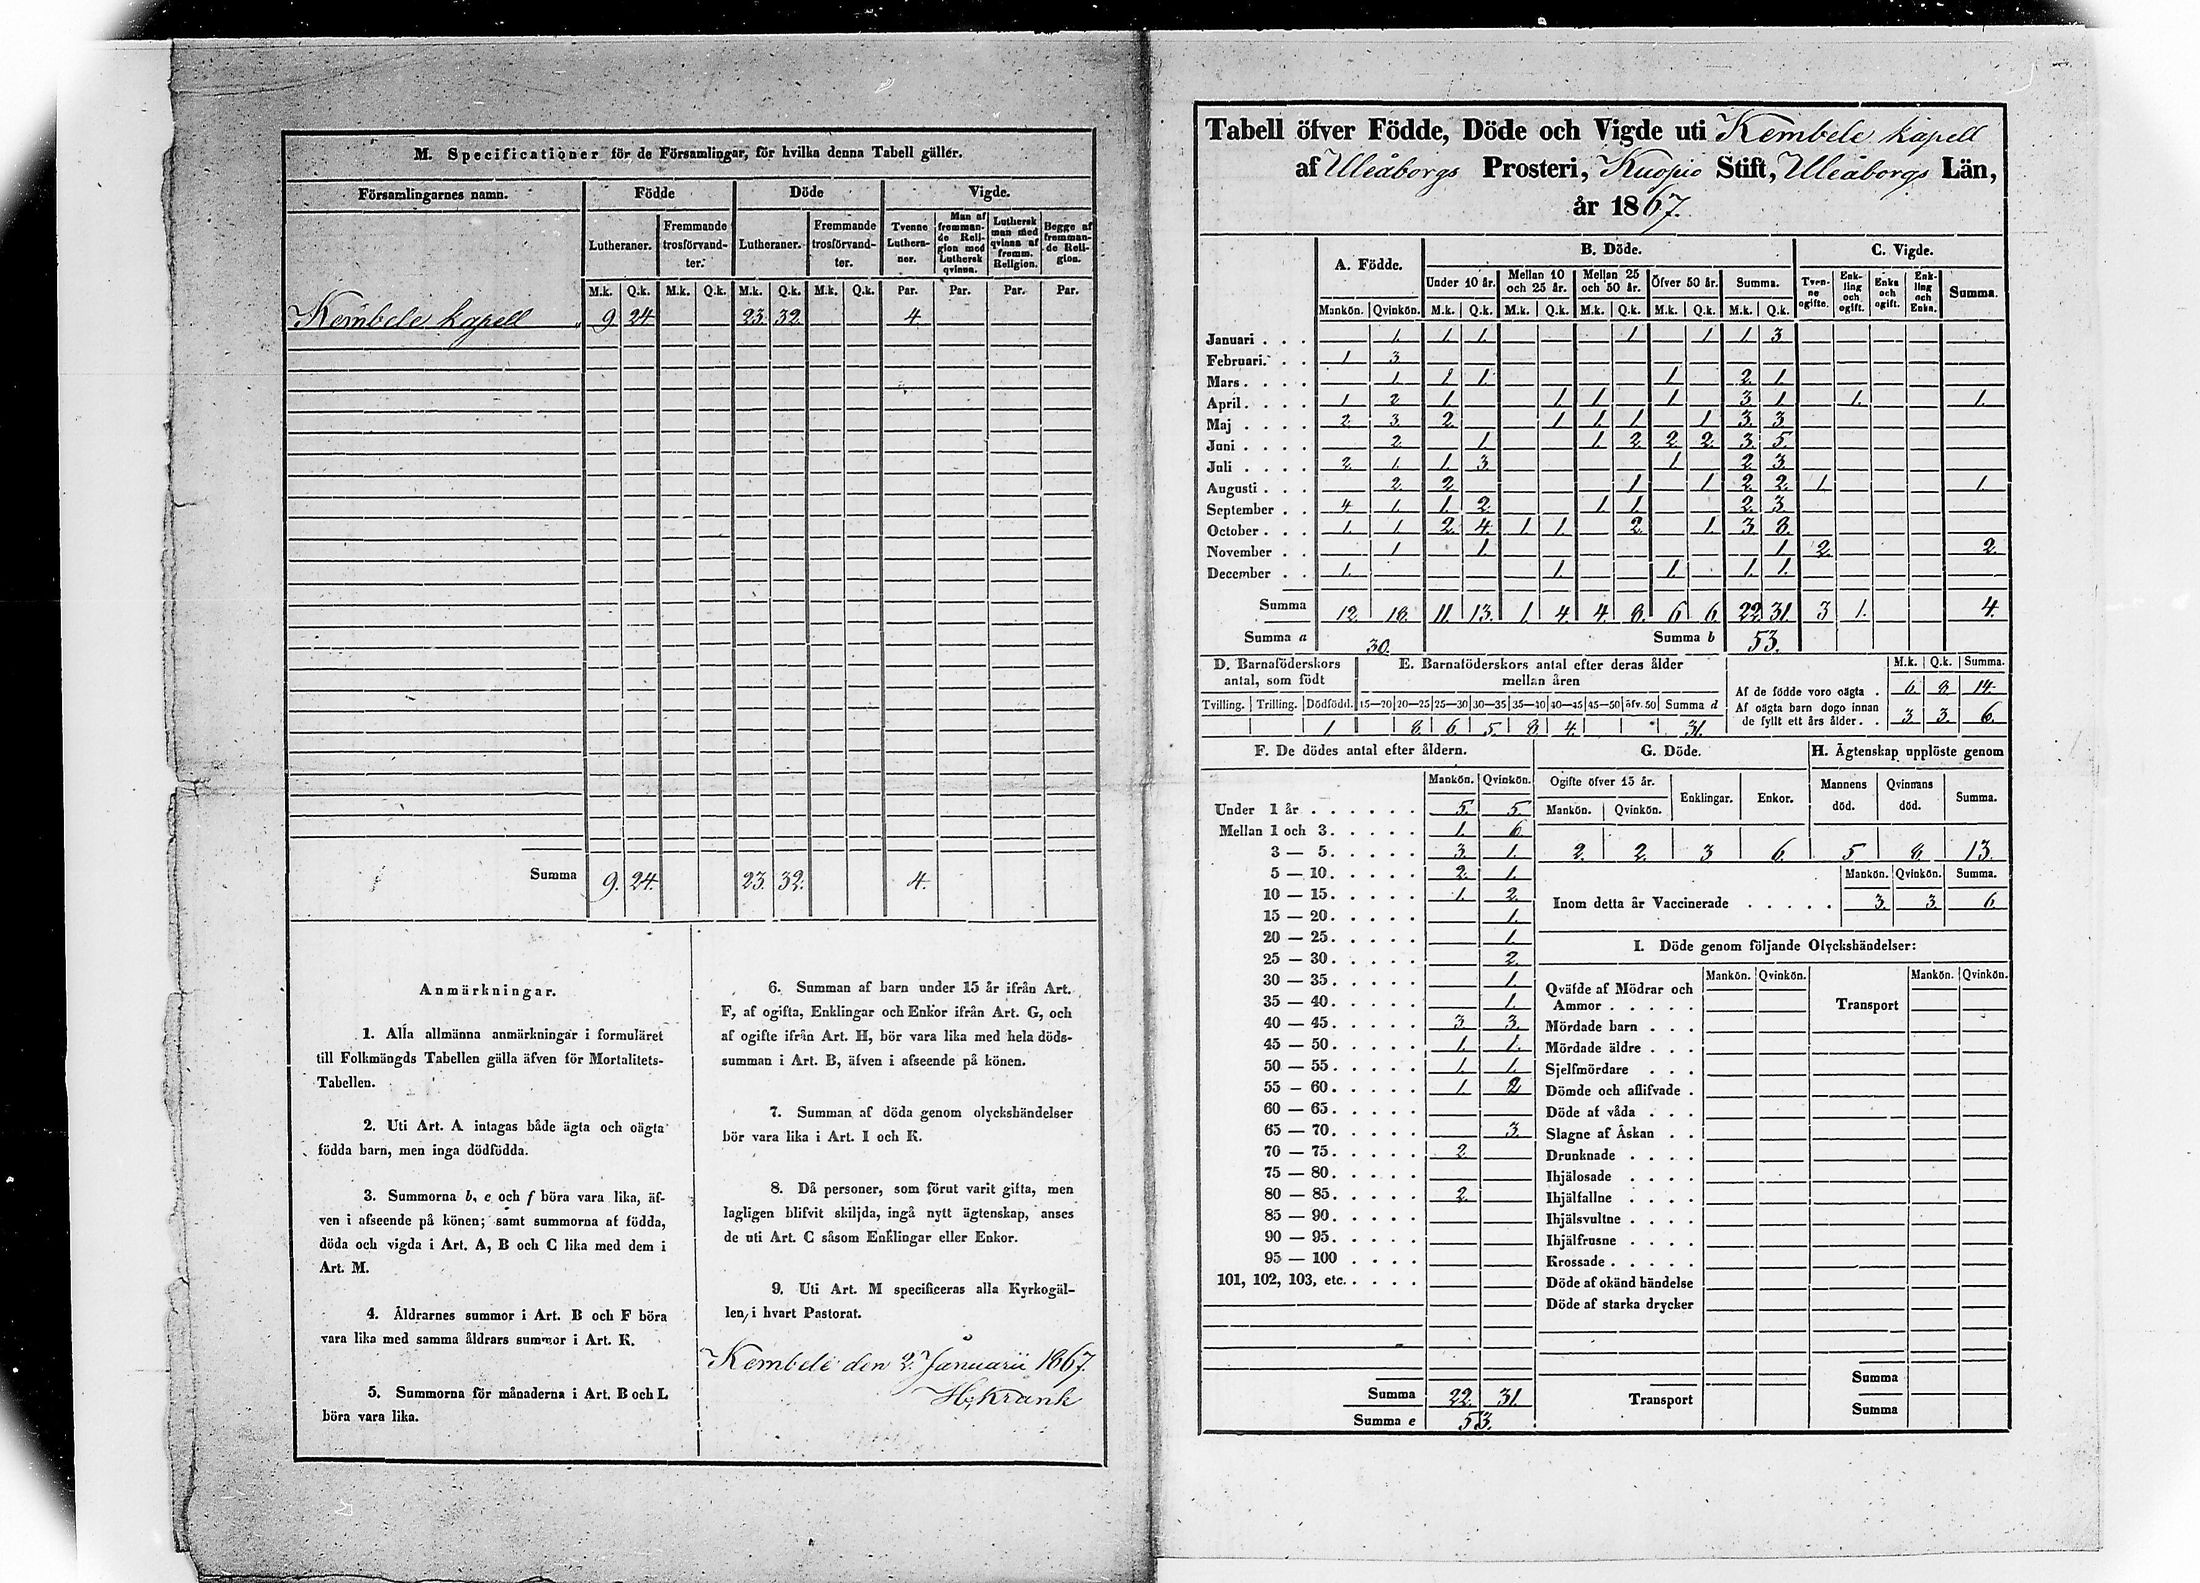 M. Specificationer för de Församlingar, för hvilka denna Tabell gäller.
Församlingarnes namn. Födde Döde Vigde.
Lutheraner. Fremmande trosförvandter. Lutheraner. Fremmande trosförvandter. Tvenne Lutheraner. Man af fremmande Religion med Luthersk qvinna. Luthersk man med qvinna af fremm. Religion. Begge af fremmande Religion.
M.k. Q.k. M.k. Q.k. M.k. Q.k. M.k. Q.k. Par. Par. Par. Par.
Kembele kapell 9. 24. 23. 32. 4.
Summa 9. 24. 23. 32. 4.
Anmärkningar.
1. Alla allmänna anmärkningar i formuläret
till Folkmängds Tabellen gälla äfven för Mortalitets-
Tabellen.
2. Uti Art. A intagas både ägta och oägta
födda barn, men inga dödfödda.
3. Summorna b, e och f böra vara lika, äf-
ven i afseende på könen; samt summorna af födda,
döda och vigda i Art. A, B och C lika med dem i
Art. M.
4. Åldrarnes summor i Art. B och F böra
vara lika med samma åldrars summor i Art. K.
5. Summorna för månaderna i Art. B och L
böra vara lika.
6. Summan af barn under 15 år ifrån Art.
F, af ogifta, Enklingar och Enkor ifrån Art. G, och
af ogifte ifrån Art. H, bör vara lika med hela döds-
summan i Art. B, äfven i afseende på könen.
7. Summan af döda genom olyckshändelser
bör vara lika i Art. I och K.
8. Då personer, som förut varit gifta, men
lagligen blifvit skiljda, ingå nytt ägtenskap, anses
de uti Art. C såsom Enklingar eller Enkor.
9. Uti Art. M specificeras alla Kyrkogäl-
len, i hvart Pastorat.
Kembele den 2. Januarii 1867.
H. Krank
Tabell öfver Födde, Döde och Vigde uti Kembele kapell
af Uleåborgs Prosteri, Kuopio Stift, Uleåborgs Län,
år 1867.
A. Födde. B. Döde. C. Vigde.
Under 10 år. Mellan 10 och 25 år. Mellan 25 och 50 år. Öfver 50 år. Summa. Tvenne ogifte. Enkling och ogift. Enka och ogift. Enkling och Enka. Summa.
Mankön. Qvinkön. M.k. Q.k. M.k. Q.k. M.k. Q.k. M.k. Q.k. M.k. Q.k.
Januari . . . 1. 1. 1. 1 1 1 3
Februari. . . 1 3
Mars . . . . 1 1 1. 1 2. 1.
April. . . . 1 2 1. 1 1 1 3 1 1. 1.
Maj . . . . 2. 3. 2. 1 1. 1 1 3. 3
Juni . . . . 2 1. 1. 2 2 2. 3 5.
Juli . . . . 2 1. 1. 3 1 2 3
Augusti . . . 2 2 1 1 2 2. 1. 1.
September . . 4 1. 1. 2 1 1. 2 3
October . . . 1. 1. 2. 4. 1 1. 2. 1. 3 8.
November . . 1 1. 1. 2. 2.
December . . 1. 1. 1. 1. 1.
Summa 12. 18. 11. 13. 1. 4. 4. 8. 6 6. 22. 31. 3 1. 4.
Summa a 30. Summa b 53.
D. Barnaföderskors antal, som födt
Tvilling. Trilling. Dödfödd.
1
E. Barnaföderskors antal efter deras ålder mellan åren
15—20 20—25 25—30 30—35 35—40 40—45 45—50 öfv. 50 Summa d
8. 6. 5. 8. 4. 31.
M.k. Q.k. Summa.
Af de födde voro oägta . 6. 8. 14.
Af oägta barn dogo innan
de fyllt ett års ålder . . 3. 3. 6.
F. De dödes antal efter åldern.
Mankön. Qvinkön.
Under 1 år . . . . . . 5. 5.
Mellan 1 och 3. . . . . 1. 6.
3 — 5. . . . . 3. 1.
5 — 10. . . . . 2. 1.
10 — 15. . . . . 1. 2.
15 — 20. . . . . 1.
20 — 25. . . . . 1.
25 — 30. . . . . 2.
30 — 35. . . . . 1.
35 — 40. . . . . 1.
40 — 45. . . . . 3 3.
45 — 50. . . . . 1. 1.
50 — 55. . . . . 1. 1.
55 — 60. . . . . 1. 2
60 — 65. . . . .
65 — 70. . . . . 3.
70 — 75. . . . . 2
75 — 80. . . . .
80 — 85. . . . . 2.
85 — 90. . . . .
90 — 95. . . . .
95 — 100 . . . .
101, 102, 103, etc. . . . .
Summa 22. 31.
Summa e 53.
G. Döde.
Ogifte öfver 15 år. Enklingar. Enkor.
Mankön. Qvinkön.
2. 2. 3 6.
H. Ägtenskap upplöste genom
Mannens död. Qvinnans död. Summa.
5 8. 13.
Mankön. Qvinkön. Summa.
Inom detta år Vaccinerade . . . . . 3. 3. 6.
I. Döde genom följande Olyckshändelser:
Mankön. Qvinkön. Mankön. Qvinkön.
Qväfde af Mödrar och
Ammor . . . . . Transport
Mördade barn . . .
Mördade äldre . . .
Sjelfmördare . . .
Dömde och aflifvade .
Döde af våda . . .
Slagne af Åskan . .
Drunknade . . . .
Ihjälosade . . . .
Ihjälfallne . . . .
Ihjälsvultne . . . .
Ihjälfrusne . . . .
Krossade . . . . .
Döde af okänd händelse
Döde af starka drycker
Summa
Transport
Summa